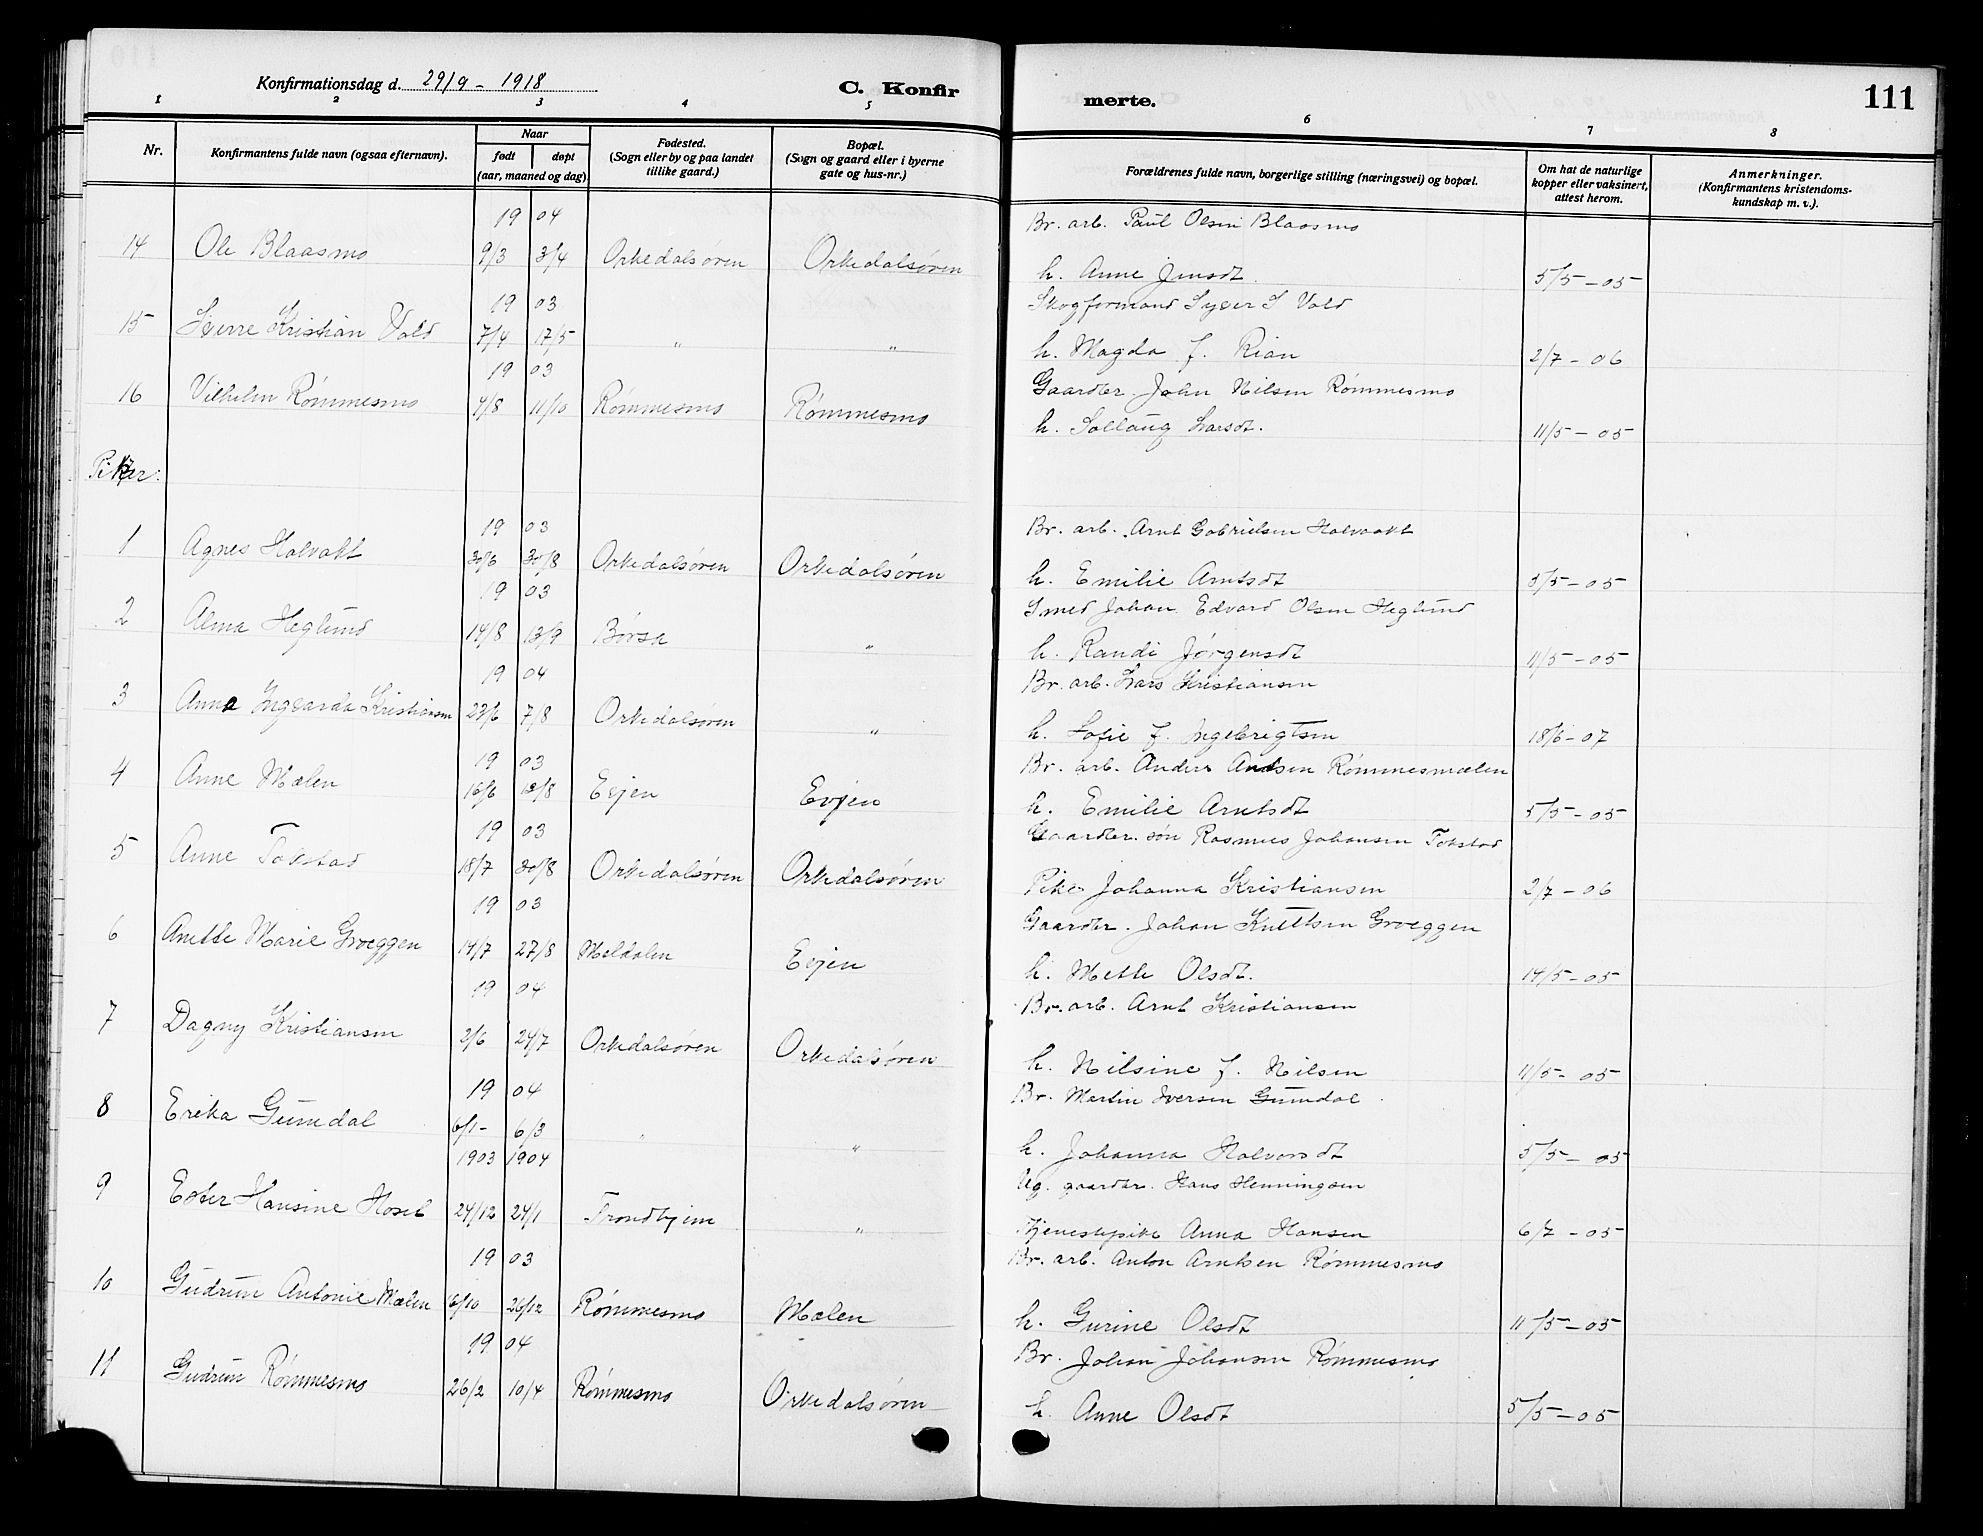 Konfirmationsdag d. 29/9 - 1918
C. Konfir
merte.
111
1 2 3 4 5 6 7 8
Nr.
Konfirmantens fulde navn (ogsaa efternavn).
Naar
født døpt
(aar, maaned og dag)
Fødested.
(Sogn eller by og paa landet
tillike gaard.)
Bopæl.
(Sogn og gaard eller i byerne
gate og hus-nr.)
Forældrenes fulde navn, borgerlige stilling (næringsvei) og bopæl.
Om hat de naturlige
kopper eller vaksinert,
attest herom.
Anmerkninger.
(Konfirmantens kristendoms-
kundskap m. v.).
19 04 Br. arb. Paul Olsen Blaasmo
14 Ole Blaasmo 9/3 3/4 Orkedalsøren Orkedalsøren h. Anne Jensdt. 5/5 - 05
19 03 Skogformand Syver S Vold
15 Sverre Kristian Vold 7/4 17/5 " " h. Magda f. Rian 2/7 - 06
19 03 Gaardbr. John Nilsen Rømmesmo
16 Vilhelm Rømmesmo 4/8 11/10 Rømmesmo Rømmesmo h. Sollaug Larsdt. 11/5 - 05
Piker:
19 03 Br. arb. Arnt Gabrielsen Halvakt
1 Agnes Halvakt 30/6 30/8 Orkedalsøren Orkedalsøren h. Emilie Arntsdt 5/5 - 05
19 03 Smed Johan Edvard Olsen Heglund
2 Alma Heglund 14/8 13/9 Børsa " h. Randi Jørgensdt 11/5 - 05
19 04 Br. arb. Lars Kristiansen
3 Anna Ingvarda Kristiansen 23/6 7/8 Orkedalsøren " h. Sofie f. Ingebrigtsen 18/6 - 07
19 03 Br. arb. Anders Andsen Rømmesmælen
4 Anne Mælen 16/6 /8 Evjen Evjen h. Emilie Arntsdt 5/5 - 05
19 03 Gaardbr. søn Rasmus Johansen Tokstad
5 Anne Tokstad 18/7 30/8 Orkedalsøren Orkedalsøren Pike Johanna Kristiansen 2/7 - 06
19 03 Gaardbr. Johan Knutsen Groeggen
6 Anette Marie Groeggen 14/7 27/8 Meldalen Evjen h. Mette Olsdt. 14/5 - 05
19 04 Br. arb. Arnt Kristiansen
7 Dagny Kristiansen 2/6 24/7 Orkedalsøren Orkedalsøren h. Nilsine f. Nilsen 11/5 - 05
19 04 Br. Martin Iversen Gumdal
8 Erika Gumdal 6/1 - 6/3 " " h. Johanna Halvorsdt 5/5 - 05
1903 1904 Ug. gaardbr. Hans Henningsen
9 Ester Hansine Hosel 24/12 24/1 Trondhjem " Tjenestepike Anna Hansen 6/7 - 05
19 03 Br. arb. Anton Arntsen Rømmesmo
10 Gudrun Antonie Mælen 16/10 26/12 Rømmesmo Mælen h. Gurine Olsdt 11/5 - 05
19 04 Br. Johan Johansen Rømmesmo
11 Gudrun Rømmesmo 26/2 10/4 Rømmesmo Orkedalsøren h. Anne Olsdt 5/5 - 05